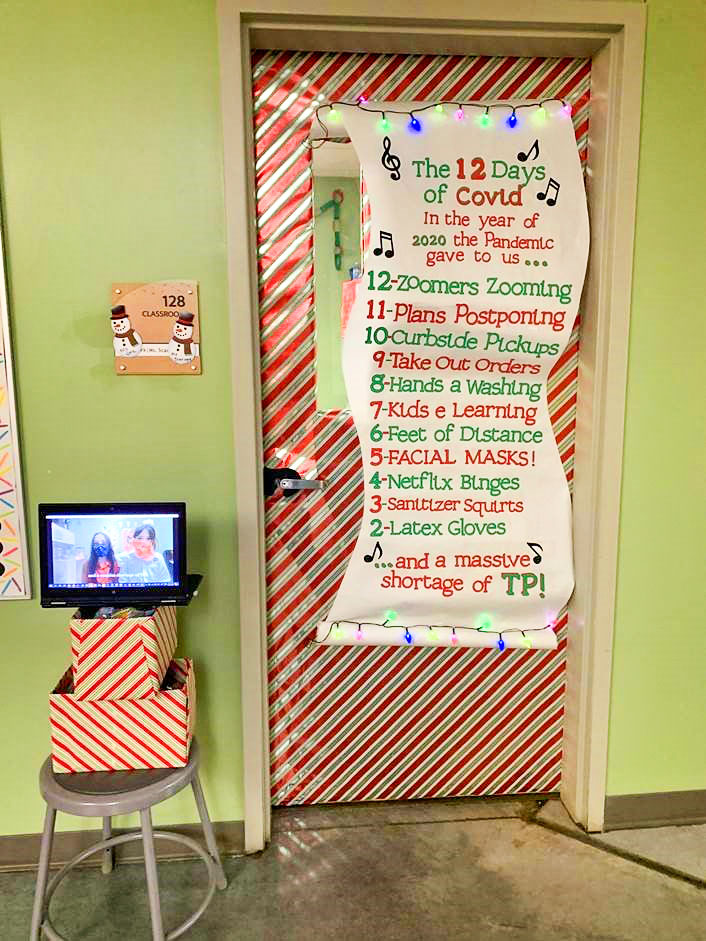 The 12 Days
of Covid
In the year of
2020 the Pandemic
gave to us ...
12-Zoomers Zooming
11-Plans Postponing
10-Curbside Pickups
9-Take Out Orders
8-Hands a Washing
7-Kids e Learning
6-Feet of Distance
5-FACIAL MASKS!
4-Netflix Binges
3-Sanitizer Squirts
2-Latex Gloves
...and a massive
shortage of TP!
128
CLASSROO